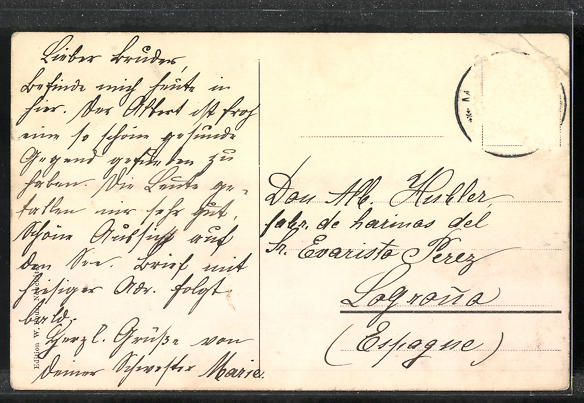 Lieber Bruder,
Befinde mich heute in
hier. Der Albert ist froh
eine so schöne gesunde
Gegend gefunden zu
haben. Die Leute ge-
fallen mir sehr gut,
Schöne Aussicht auf
den See. Brief mit
hiesiger Adr. folgt
bald.
Herzl. Grüße von
Deiner Schwester Marie.
Edition W.
Don Alb. Huller,
fabr. de harinas del
Sr. Evaristo Perez
Logroño
(Espagne)